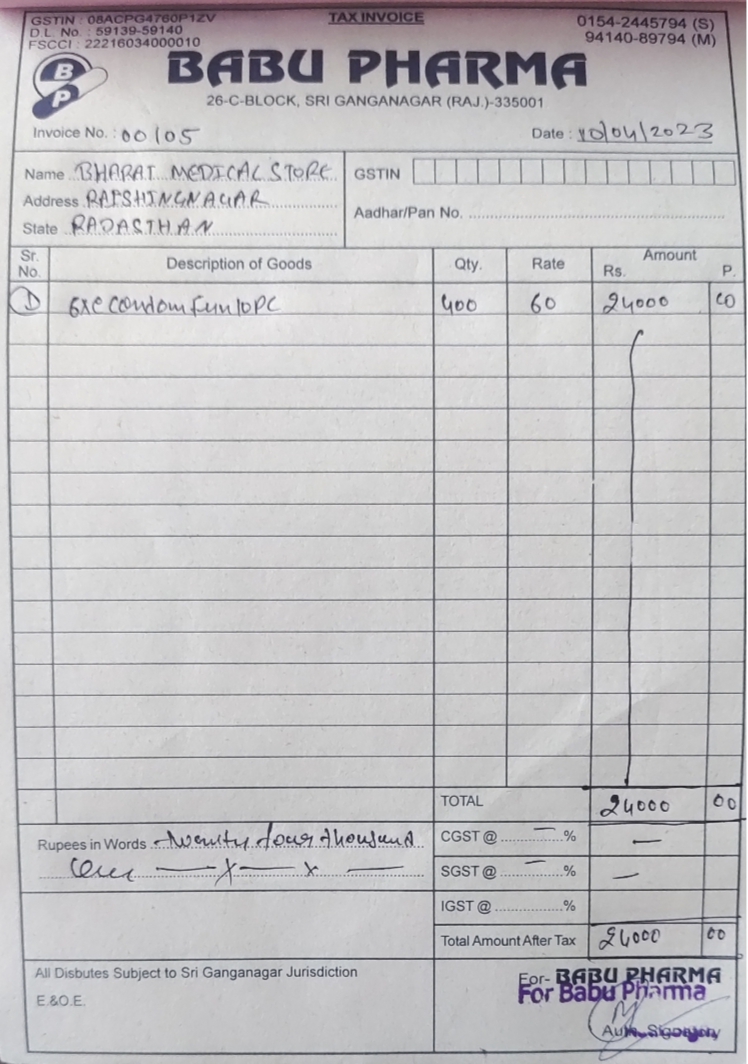 GSTIN : 08ACPG4760P1ZV
TAX INVOICE
0154-2445794 (S)
D.L. No. : 59139-59140
94140-89794 (M)
FSCCI : 22216034000010
BP
BABU PHARMA
26-C-BLOCK, SRI GANGANAGAR (RAJ.)-335001
Invoice No. : 00105 Date : 10/04/2023
Name BHARAT MEDICAL STORE GSTIN
Address RAISHINGNAGAR
Aadhar/Pan No.
State RADASTHAN
Sr. No. Description of Goods Qty. Rate Amount Rs. P.
1) condom fun 10PC 400 60 24000 00
TOTAL 24000 00
Rupees in Words Twenty four thousand CGST @ — % —
— x — x — SGST @ — % —
IGST @ %
Total Amount After Tax 24000 00
All Disbutes Subject to Sri Ganganagar Jurisdiction
E.&O.E.
For- BABU PHARMA
For Babu Pharma